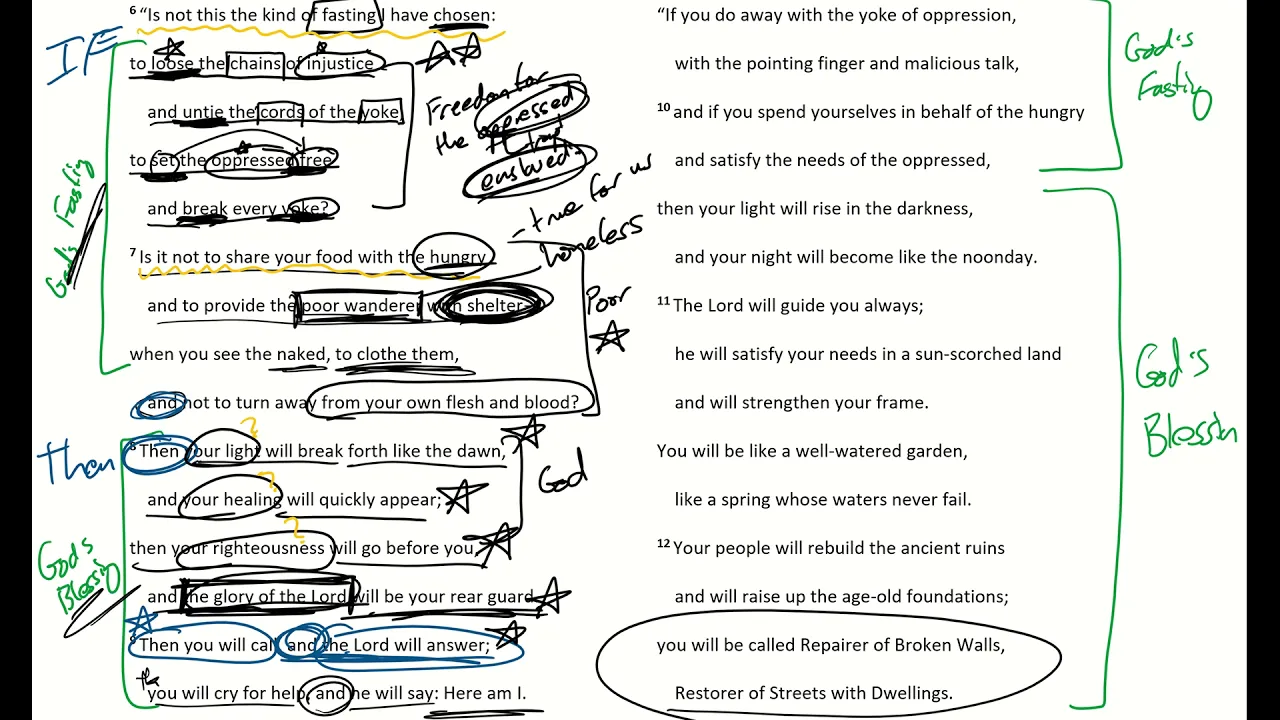 6 “Is not this the kind of fasting I have chosen:
IF
to loose the chains of injustice
and untie the cords of the yoke,
to set the oppressed free
and break every yoke?
Freedom for
the oppressed
enslaved.
- true for us
God's Fasting
7 Is it not to share your food with the hungry
homeless
and to provide the poor wanderer with shelter—
Poor
when you see the naked, to clothe them,
and not to turn away from your own flesh and blood?
Then
8 Then your light will break forth like the dawn,
and your healing will quickly appear;
God
then your righteousness will go before you,
and the glory of the Lord will be your rear guard.
God's
Blessing
9 Then you will call, and the Lord will answer;
you will cry for help, and he will say: Here am I.
“If you do away with the yoke of oppression,
with the pointing finger and malicious talk,
10 and if you spend yourselves in behalf of the hungry
and satisfy the needs of the oppressed,
God's
Fasting
then your light will rise in the darkness,
and your night will become like the noonday.
11 The Lord will guide you always;
he will satisfy your needs in a sun-scorched land
and will strengthen your frame.
You will be like a well-watered garden,
like a spring whose waters never fail.
12 Your people will rebuild the ancient ruins
and will raise up the age-old foundations;
you will be called Repairer of Broken Walls,
Restorer of Streets with Dwellings.
God's